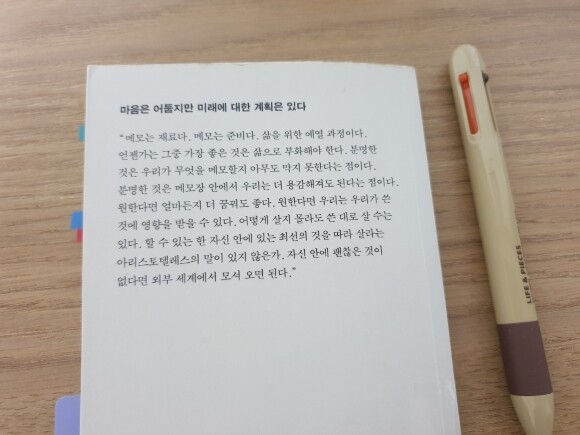 마음은 어둡지만 미래에 대한 계획은 있다
“메모는 재료다. 메모는 준비다. 삶을 위한 예열 과정이다.
언젠가는 그중 가장 좋은 것은 삶으로 부화해야 한다. 분명한
것은 우리가 무엇을 메모할지 아무도 막지 못한다는 점이다.
분명한 것은 메모장 안에서 우리는 더 용감해져도 된다는 점이다.
원한다면 얼마든지 더 꿈꿔도 좋다. 원한다면 우리는 우리가 쓴
것에 영향을 받을 수 있다. 어떻게 살지 몰라도 쓴 대로 살 수는
있다. 할 수 있는 한 자신 안에 있는 최선의 것을 따라 살라는
아리스토텔레스의 말이 있지 않은가. 자신 안에 괜찮은 것이
없다면 외부 세계에서 모셔 오면 된다.”
LIFE & PIECES